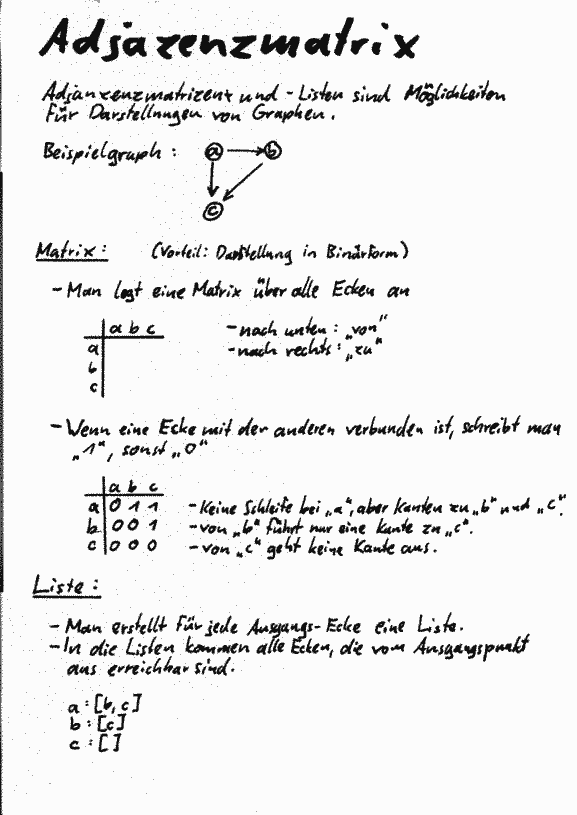 Adjazenzmatrix
Adjanzenzmatrizenx und - Listen sind Möglichkeiten
für Darstellungen von Graphen.
Beispielgraph :
a b
c
Matrix: (Vorteil: Darstellung in Binärform)
- Man legt eine Matrix über alle Ecken an
a b c
a
b
c
- nach unten : „von“
- nach rechts : „zu“
- Wenn eine Ecke mit der anderen verbunden ist, schreibt man
„1“, sonst „0“
a b c
a 0 1 1 - Keine Schleife bei „a“, aber Kanten zu „b“ und „c“.
b 0 0 1 - von „b“ führt nur eine Kante zu „c“.
c 0 0 0 - von „c“ geht keine Kante aus.
Liste :
- Man erstellt für jede Ausgangs-Ecke eine Liste.
- In die Listen kommen alle Ecken, die vom Ausgangspunkt
aus erreichbar sind.
a : [b, c]
b : [c]
c : [ ]